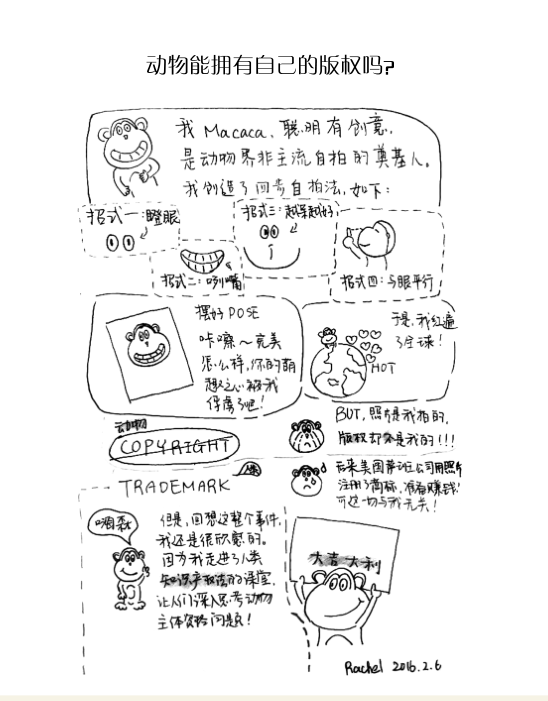 动物能拥有自己的版权吗?
我Macaca、聪明有创意，
是动物界非主流自拍的奠基人。
我创造了四步自拍法，如下：
招式一:瞪眼
招式二:咧嘴
招式三:越呆越好
招式四:与眼平行
摆好POSE
咔嚓～完美
怎么样，你的萌
想之心被我
俘虏了吧！
于是，我红遍
了全球！
HOT
动物
COPYRIGHT
BUT，照片是我拍的，
版权却不是我的!!!
后来美国某些公司用照片
注册了商标，准备赚钱！
可这一切与我无关！
TRADEMARK
嗨森
但是，回想这整个事件，
我还是很欣慰的。
因为我走进了人类
知识产权法的课堂，
让人们深入思考动物
主体资格问题！
大吉大利
Rachel 2016.2.6